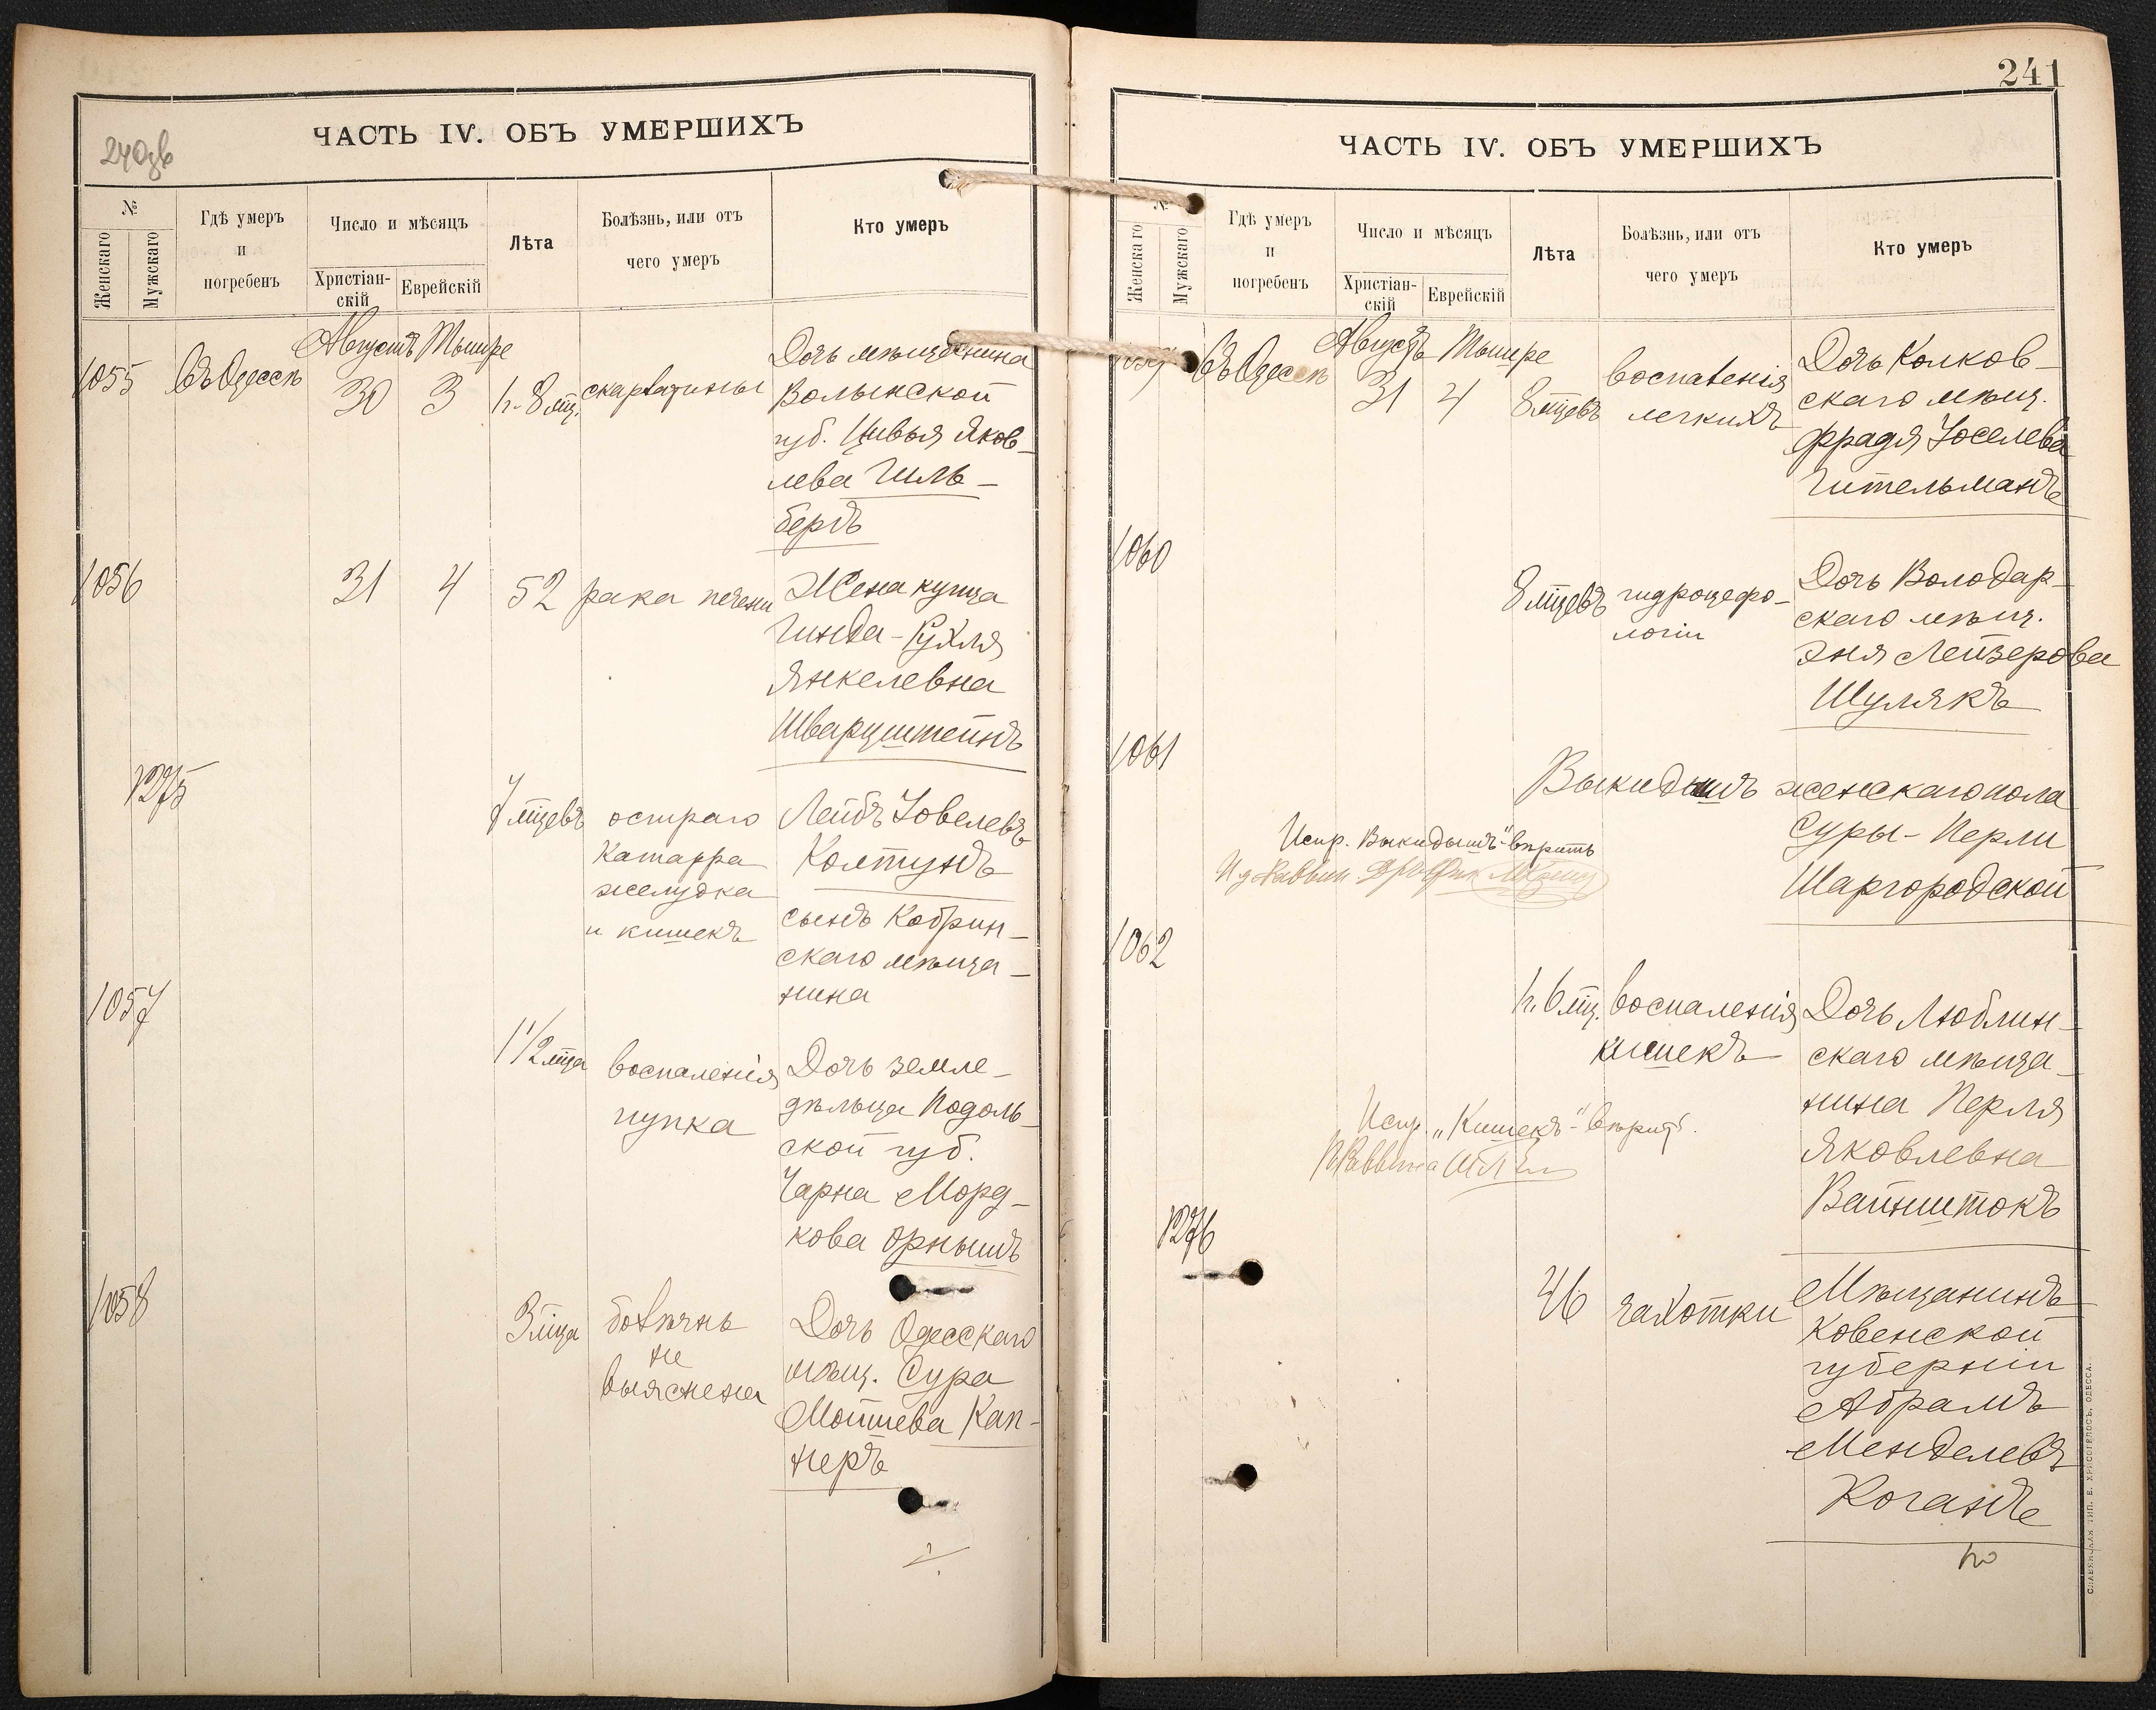 240об
ЧАСТЬ IV. ОБЪ УМЕРШИХЪ
№
Женскаго
Мужскаго
Гдѣ умеръ
и
погребенъ
Число и мѣсяцъ
Христіан-
скій
Еврейскій
Лѣта
Болѣзнь, или отъ
чего умеръ
Кто умеръ
Августъ Тышре
1055 Въ Одессѣ 30 3 1г. 8 мц. скарлатины
Дочь мѣщанина
Волынской
губ. Цивья Яков-
лева Гиль-
бердъ
1056 31 4 52 рака печени
Жена купца
Гинда-Рухля
Янкелевна
Шварцштейнъ
1275
7 мцевъ остраго
катарра
желудка
и кишекъ
Лейбъ Іовелевъ
Колтунъ
сынъ Кобрин-
скаго мѣща-
нина
1057
1 1/2 мца воспаленія
пупка
Дочь земле-
дѣльца Подоль-
ской губ.
Чарна Морд-
кова Орнышъ
1058
3 мца болѣзнь
не
выяснена
Дочь Одесскаго
мѣщ. Сура
Мошева Кап-
неръ
241
ЧАСТЬ IV. ОБЪ УМЕРШИХЪ
№
Женскаго
Мужскаго
Гдѣ умеръ
и
погребенъ
Число и мѣсяцъ
Христіан-
скій
Еврейскій
Лѣта
Болѣзнь, или отъ
чего умеръ
Кто умеръ
Августъ Тышре
1059 Въ Одессѣ 31 4 8 мцевъ воспаленія
легкихъ
Дочь Колков-
скаго мѣщ.
Фрадя Іоселева
Гительманъ
1060
8 мцевъ гидроцефо-
логіи
Дочь Володар-
скаго мѣщ.
Эня Лейзерова
Шулякъ
1061
Выкидышъ женскаго пола
Суры-Перли
Шаргородской
Испр. "Выкидышъ" вѣрить
И д Раввин.
1062
1г. 6 мц. воспаленія
кишекъ
Дочь Люблин-
скаго мѣща-
нина Перля
Яковлевна
Вайнштокъ
Испр. "Кишекъ" вѣрить.
Раввина
1276
46 чахотки
Мѣщанинъ
Ковенской
губерніи
Абрамъ
Менделевъ
Коганъ
СЛАВЯНСКАЯ ТИП. Е. ХРИСОГЕЛОСЪ, ОДЕССА.